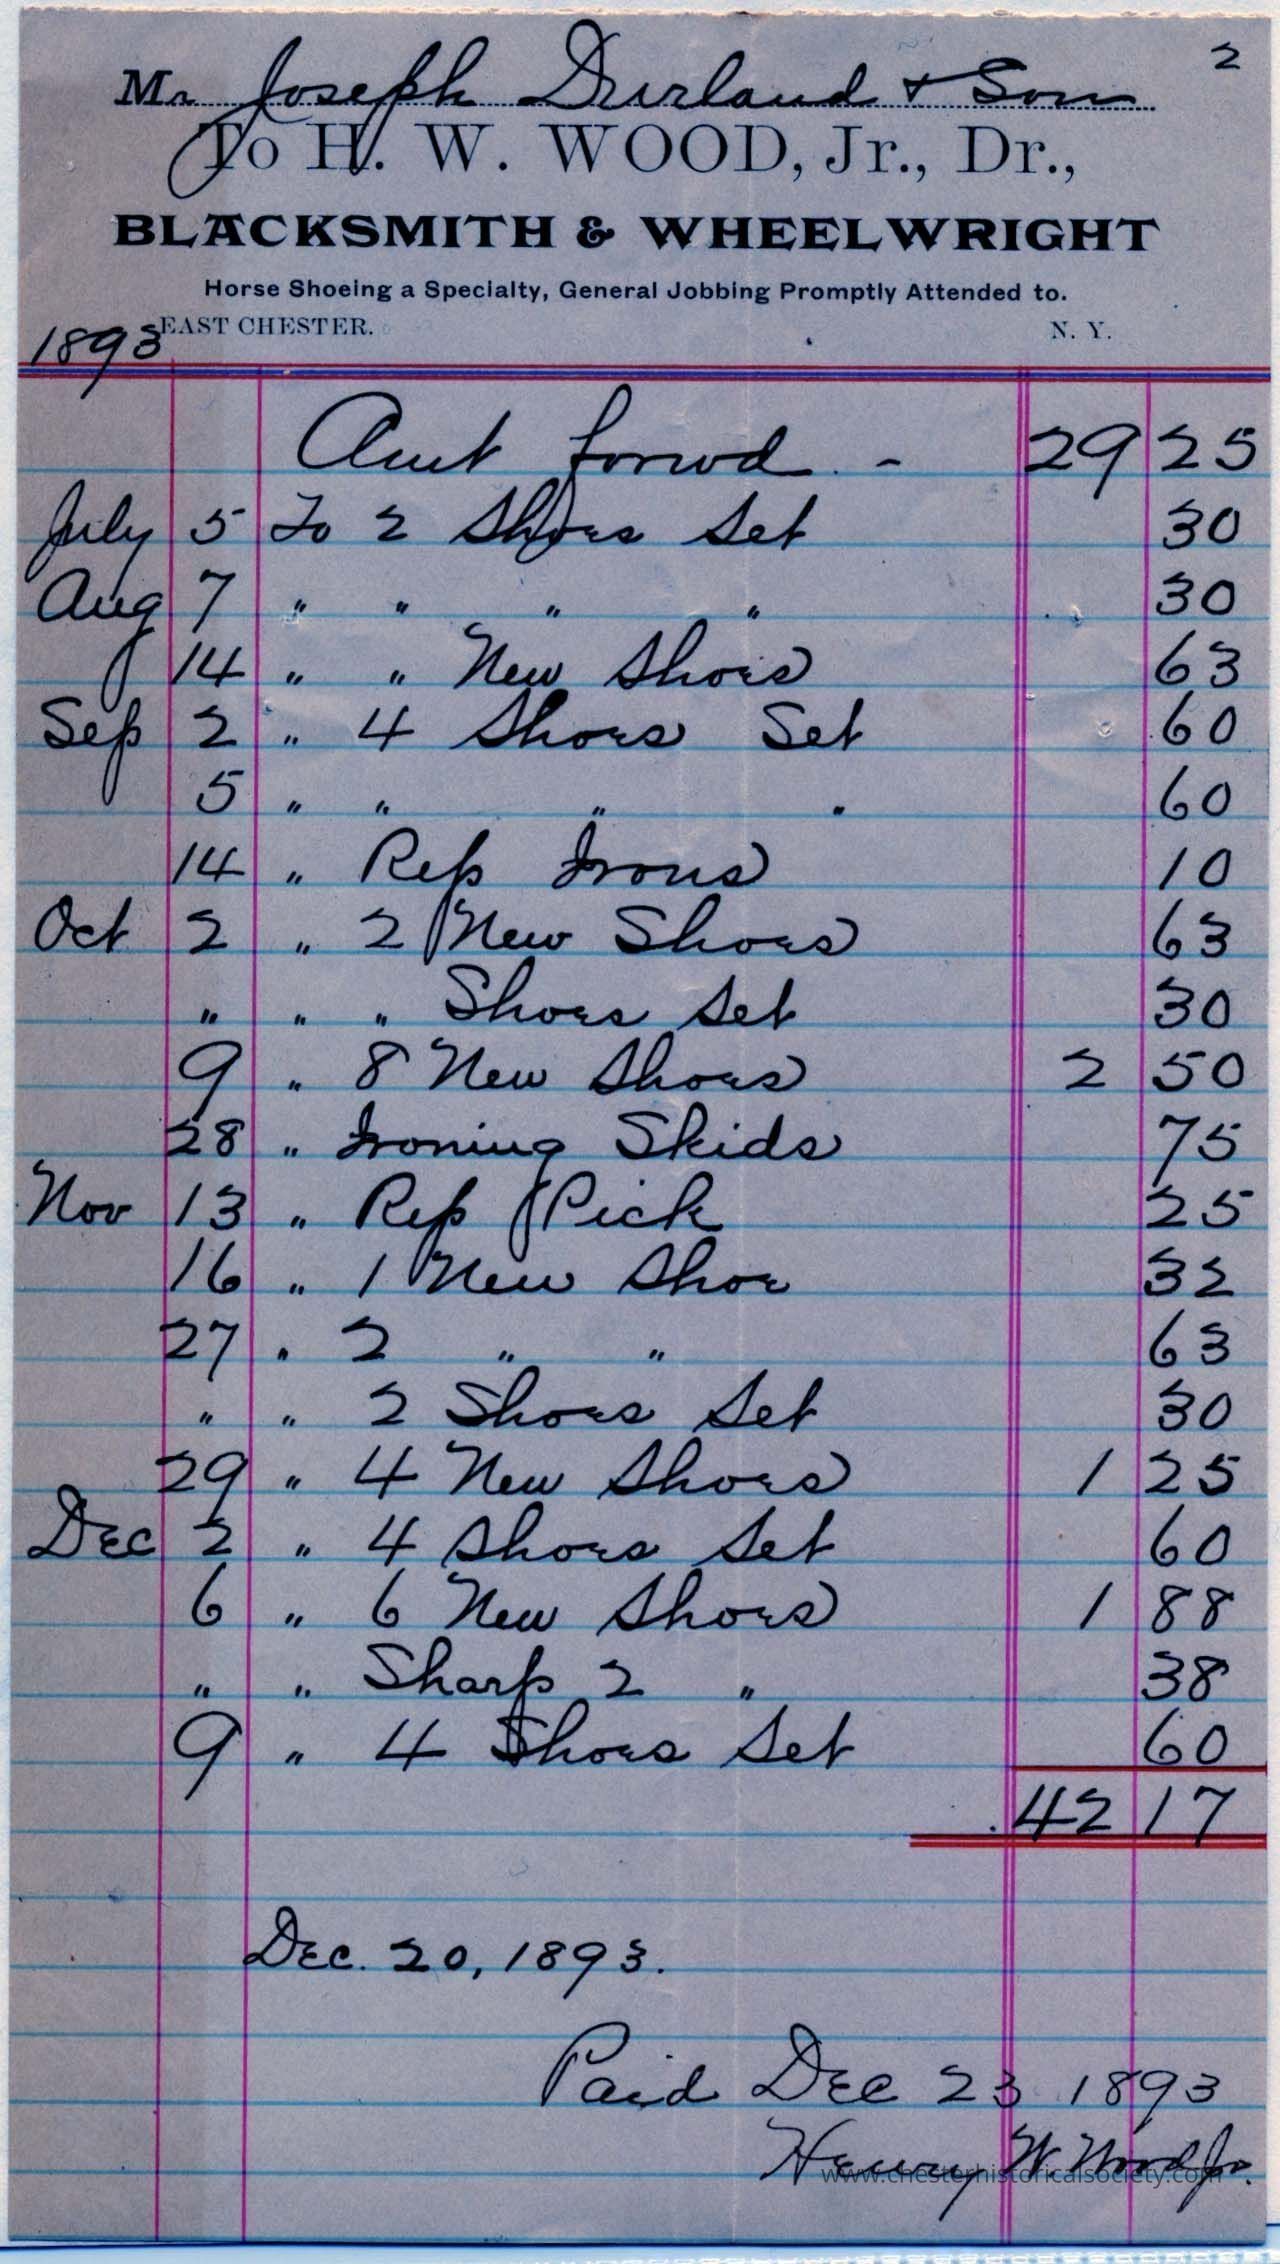 2
Mr Joseph Durland & Son
To H. W. WOOD, Jr., Dr.,
BLACKSMITH & WHEELWRIGHT
Horse Shoeing a Specialty, General Jobbing Promptly Attended to.
1893 EAST CHESTER. N. Y.
Amt forwd - 29 25
July 5 To 2 Shoes Set 30
Aug 7 " " " " 30
14 " " New Shoes 63
Sep 2 " 4 Shoes Set 60
5 " " " " 60
14 " Rep Irons 10
Oct 2 " 2 New Shoes 63
" " " Shoes Set 30
9 " 8 New Shoes 2 50
28 " Ironing Skids 75
Nov 13 " Rep Pick 25
16 " 1 New Shoe 32
27 " 2 " " 63
" " 2 Shoes Set 30
29 " 4 New Shoes 1 25
Dec 2 " 4 Shoes Set 60
6 " 6 New Shoes 1 88
" " Sharp 2 " 38
9 " 4 Shoes Set 60
42 17
Dec. 20, 1893.
Paid Dec 23 1893
Henry W. Wood Jr.
www.chesterhistoricalsociety.com